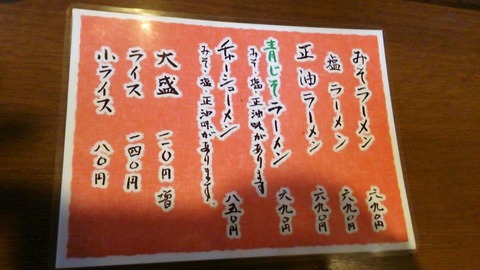 みそラーメン 六九〇円
塩ラーメン 六九〇円
正油ラーメン 六九〇円
青じそラーメン 六九〇円
みそ・塩・正油味があります
チャーシューメン 八五〇円
みそ・塩・正油味があります。
大盛 一一〇円増
ライス 一四〇円
小ライス 八〇円